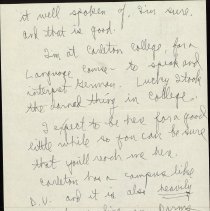 it well spoken of, I'm sure,
and that is good.
I'm at Carleton College, for a
Language course - to speak and
interpret German. Lucky I took
the darned thing in college.
I expect to be here for a good
little while so you can be sure
that you'll reach me here.
Carleton has a campus like
D.U. and it is also heavily